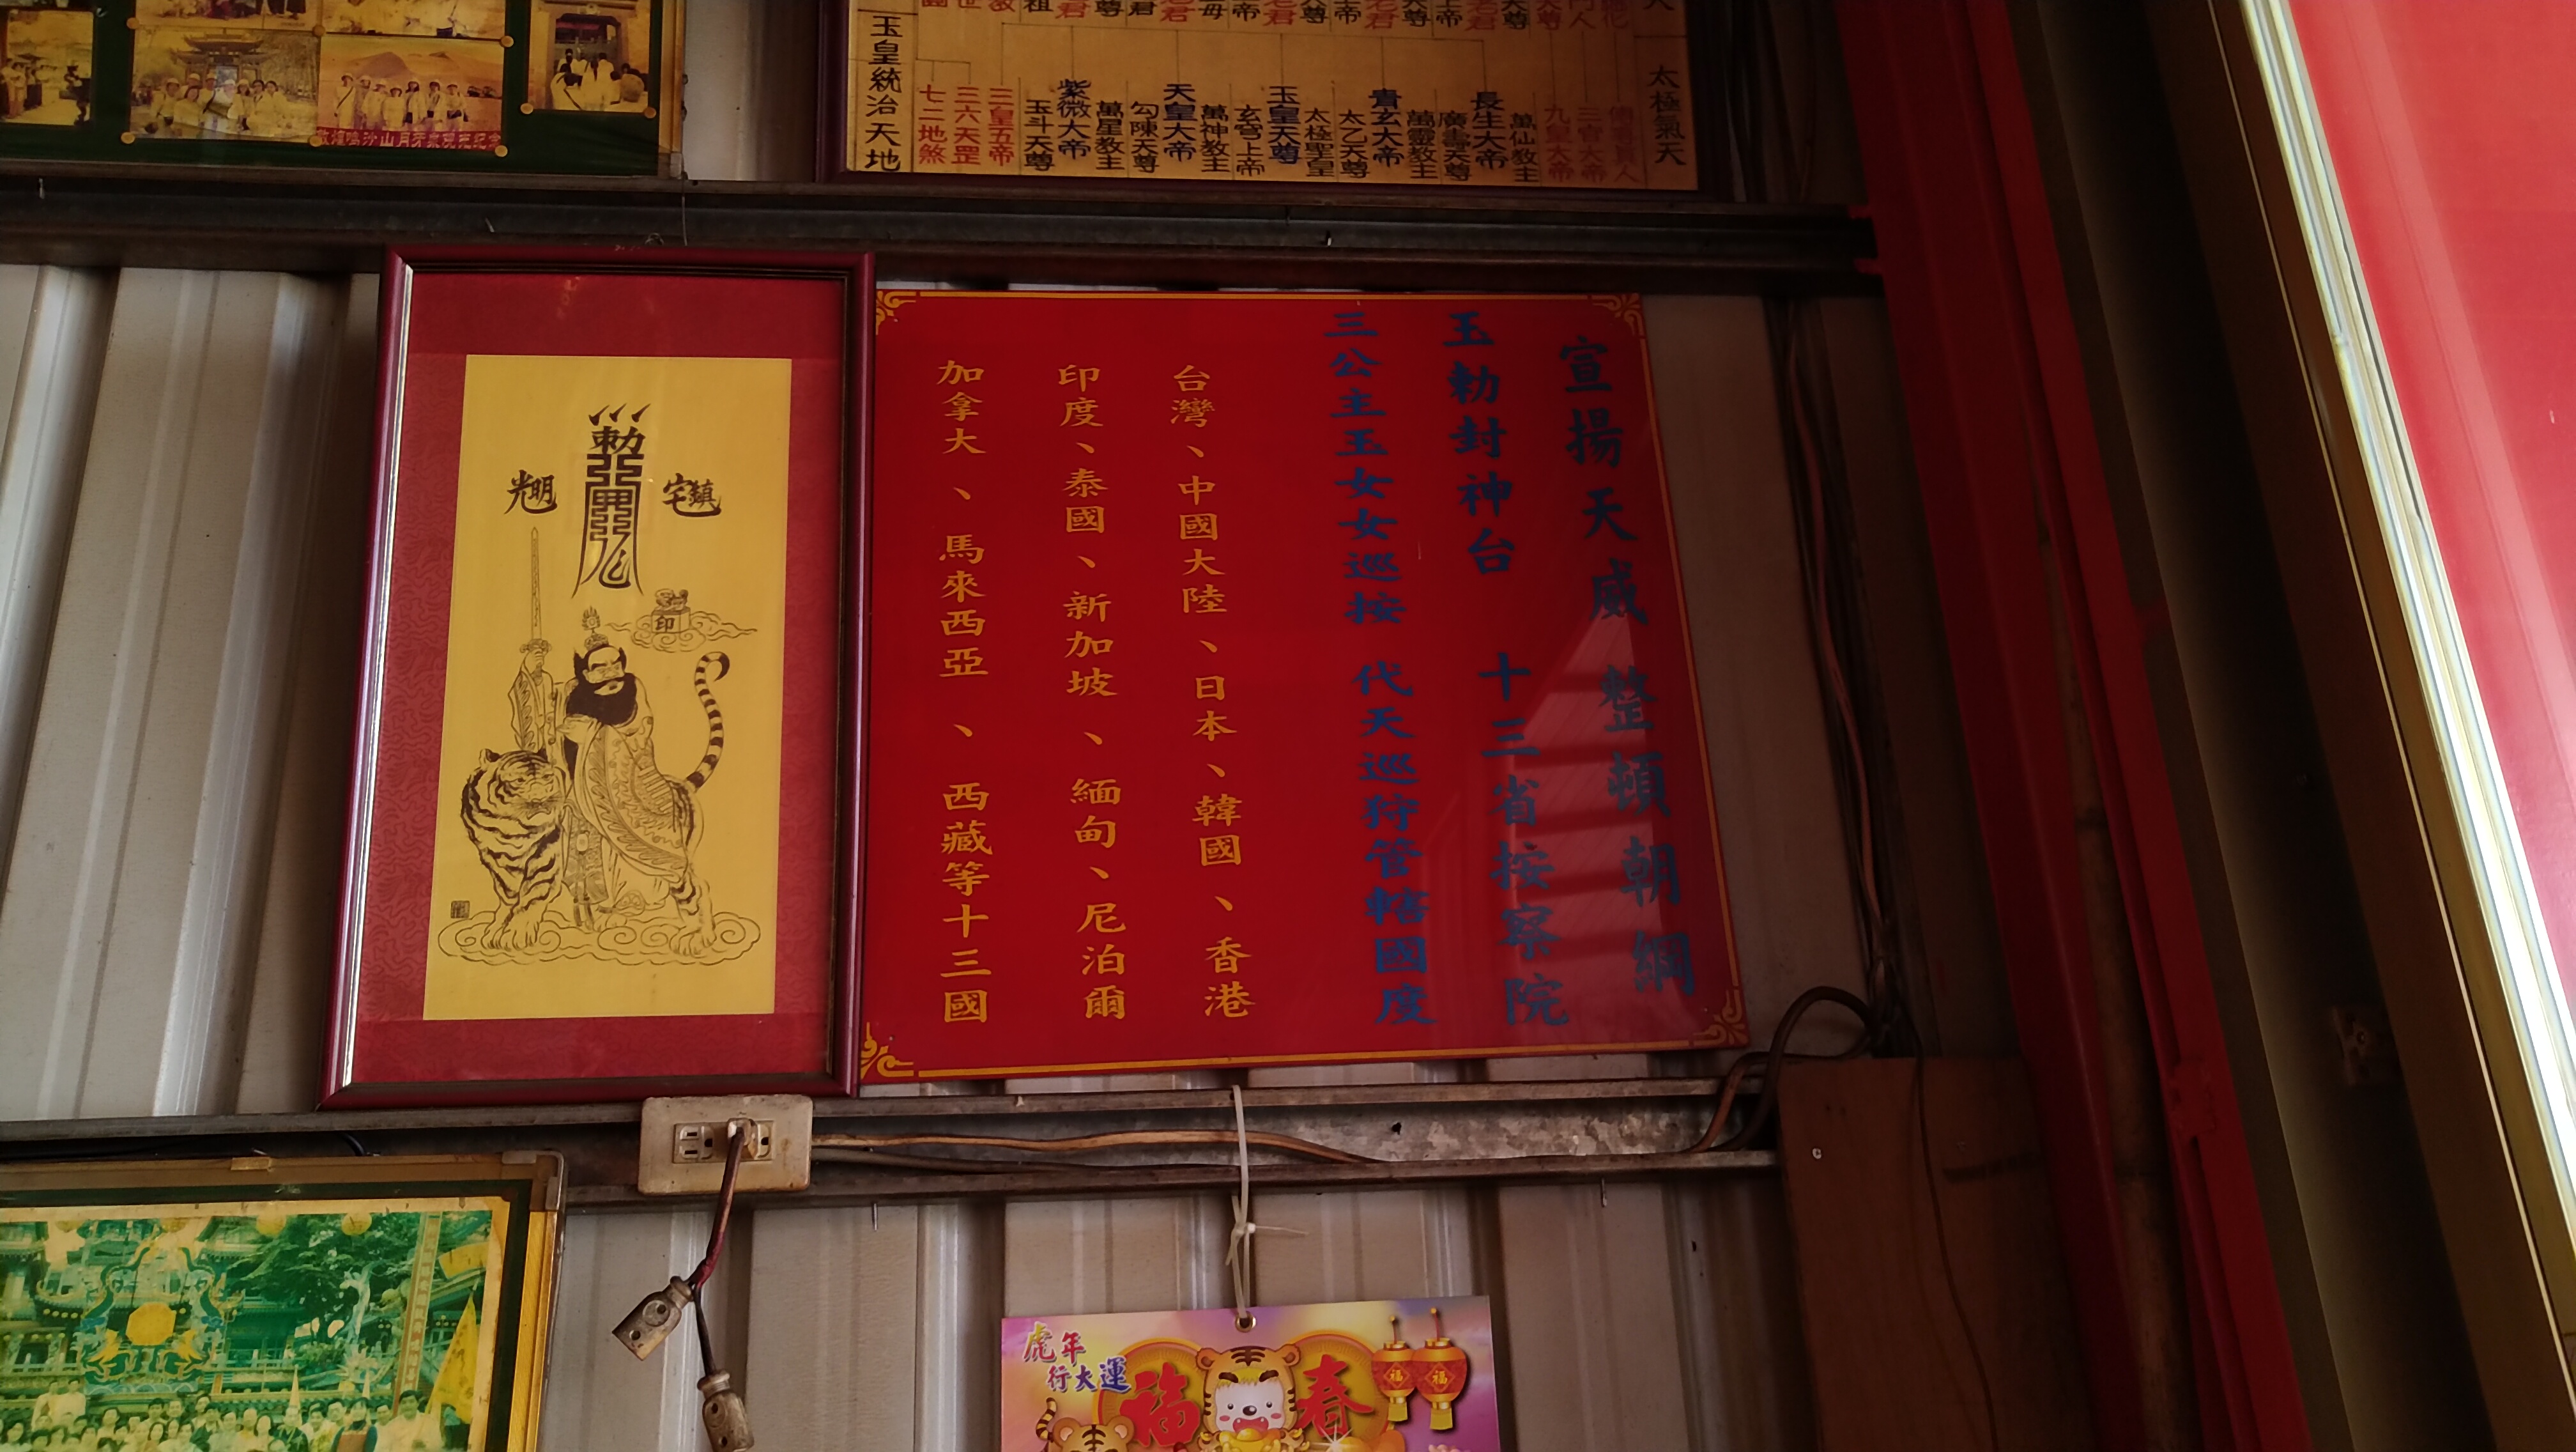 玉皇統治天地
七二地煞
三六天罡
三皇五帝
玉斗天尊
紫微大帝
萬星教主
勾陳天尊
天皇大帝
萬神教主
玄穹上帝
玉皇天尊
太極聖皇
太乙天尊
貴玄大帝
萬靈教主
廣壽天尊
長生大帝
萬仙教主
九皇大帝
三官大帝
太極氣天
宣揚天威 整頓朝綱
玉勅封神台 十三省按察院
三公主玉女女巡按 代天巡狩管轄國度
台灣、中國大陸、日本、韓國、香港
印度、泰國、新加坡、緬甸、尼泊爾
加拿大、馬來西亞、西藏等十三國
勅
鎮宅
光明
印
虎年
行大運
福
春
福
福